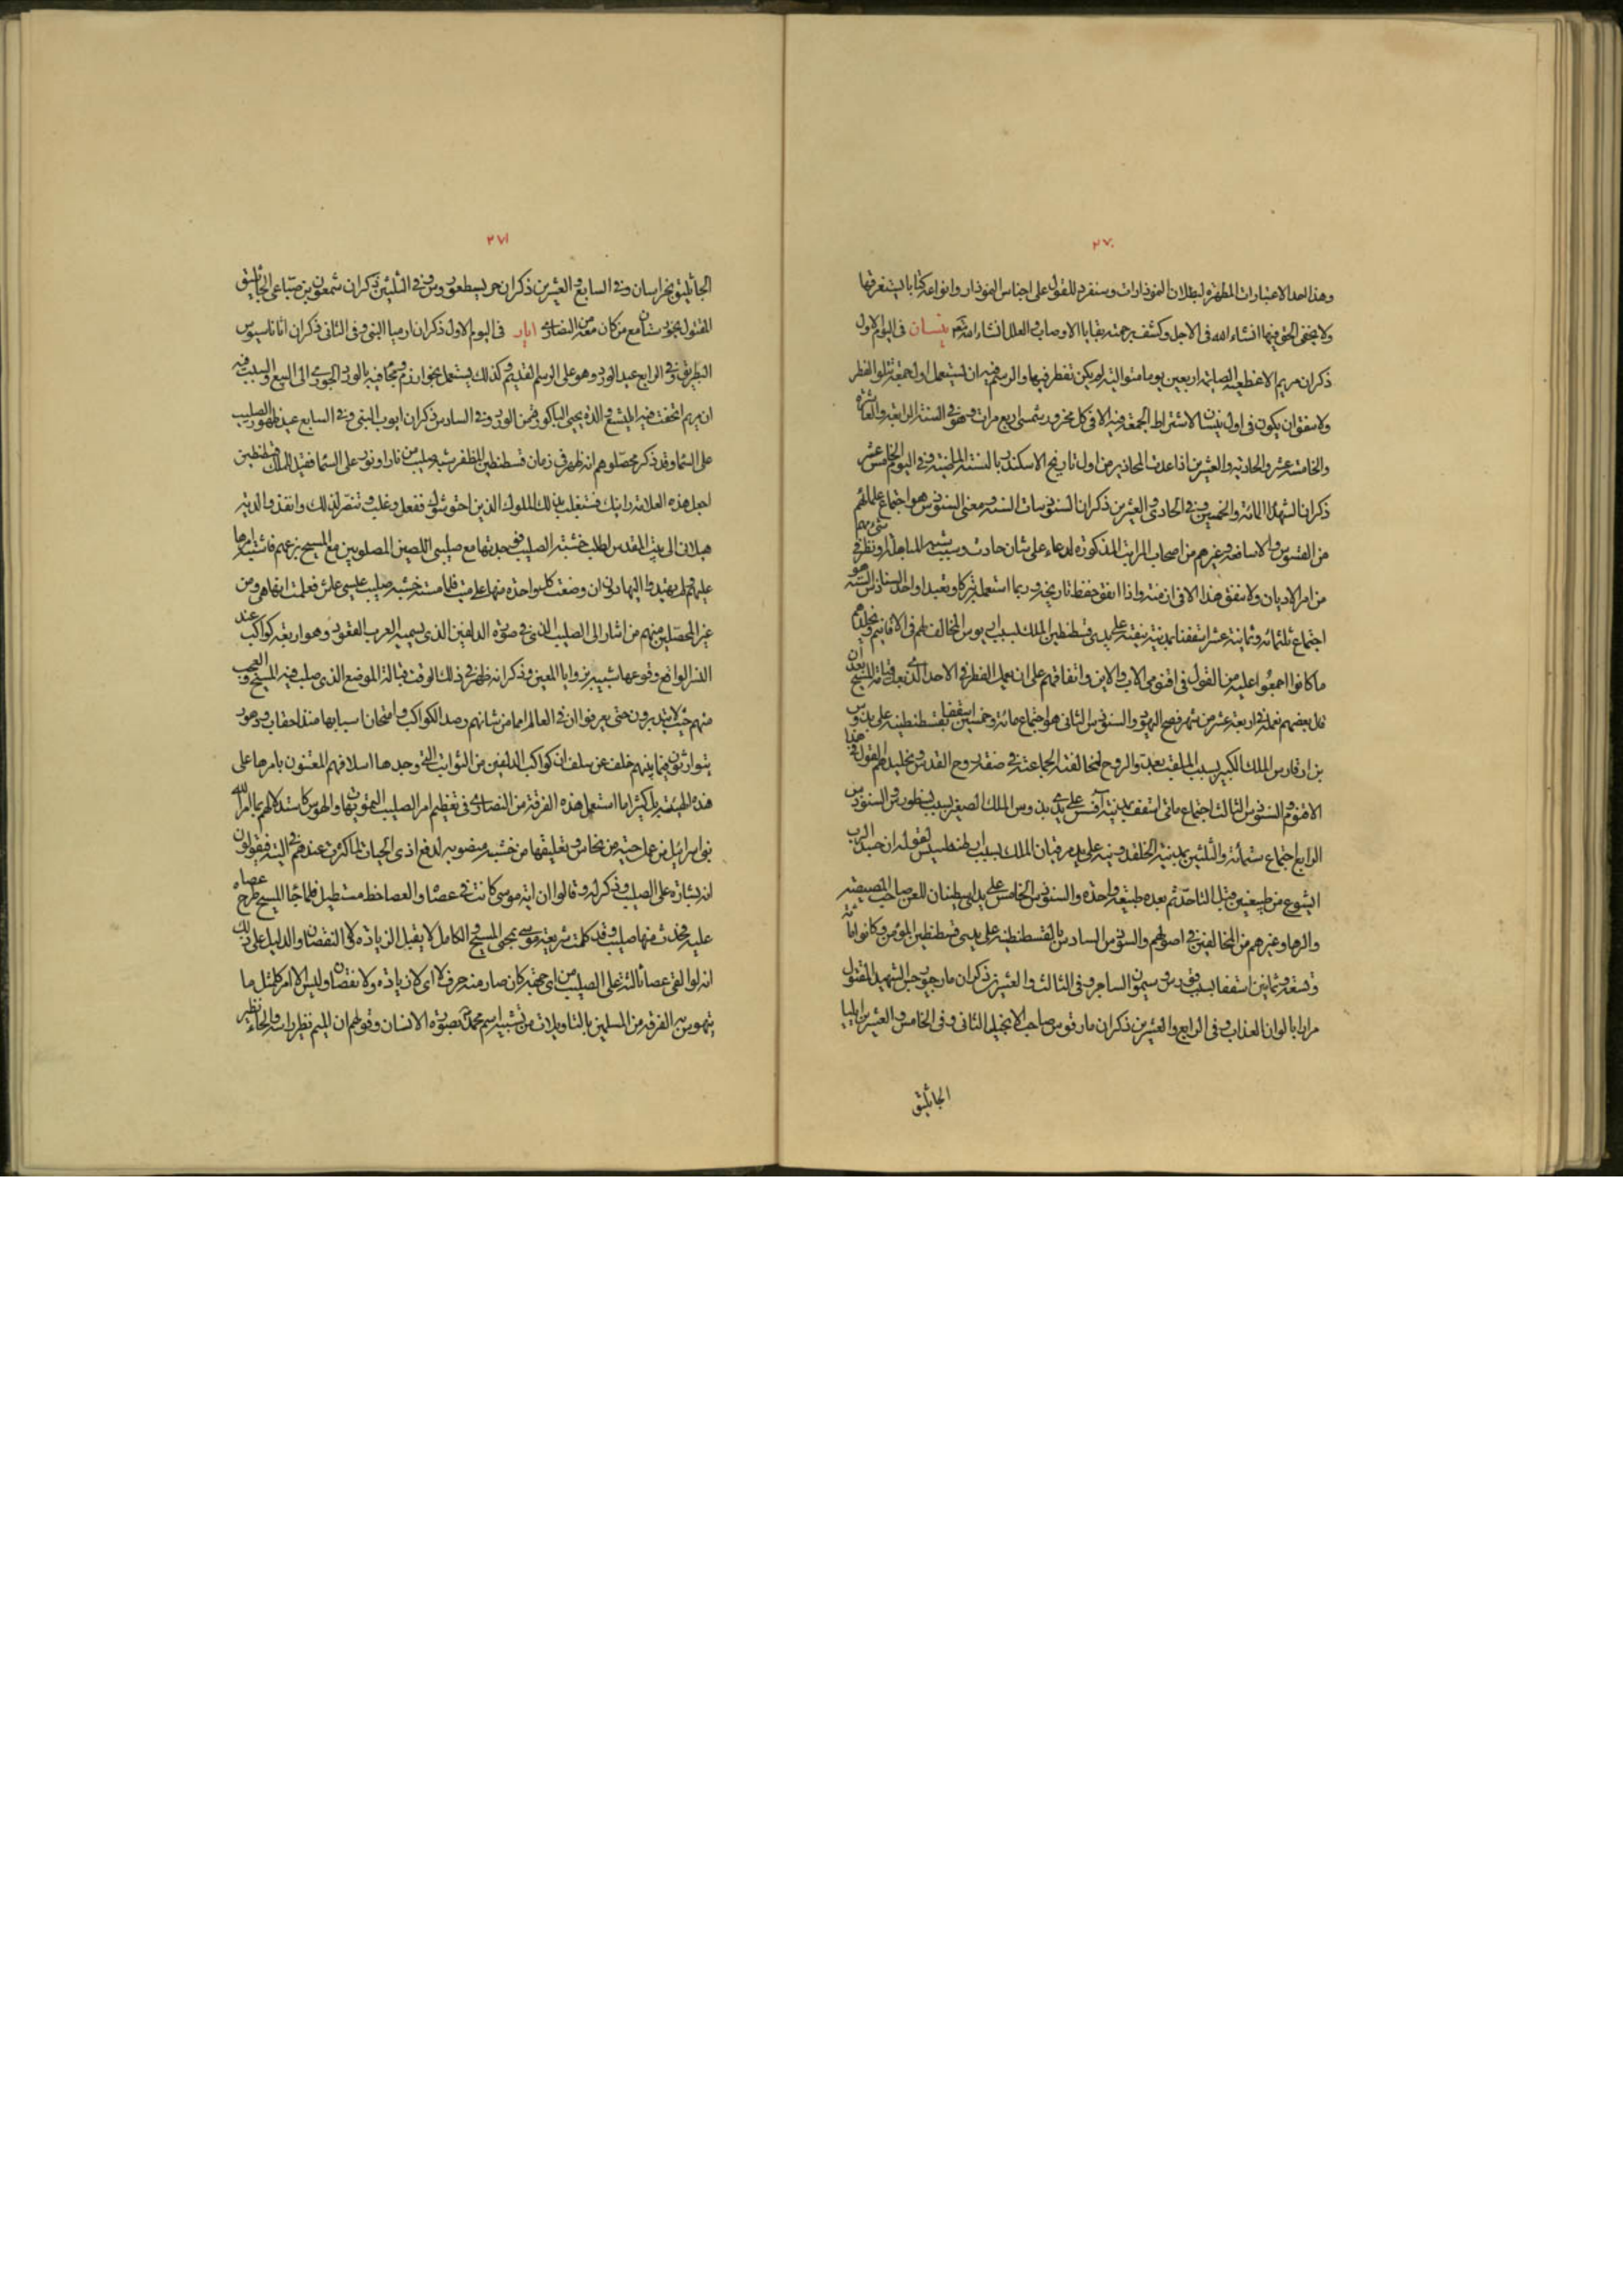 ٢٧٠
وهذا احد الاعتبارات المظهرة لبطلان النموذارات وسنفرد للقول على اجناس النموذار وانواعه كتابا يستغرقها
ولا يخفى الحق فيها انشاء الله فى الاجل وكشف برحمته بقايا الاوصاب والعلل انشاء الله نيسان فى اليوم الاول
ذكران مريم الصايمة اربعين يوما متوالية لم يكن تفطر فيها والرسم فيه ان يستعمل اول جمعة تتلو الفطر
ولا يتفق ان يكون فى اول نيسان لاشتراط الجمعة فيه الا فى كل محزور شمسى اربع مرات وهو فى السنة الرابعة والعاشرة
والخامسة عشر والحادية والعشرين اذا عدت المحاذير من اول تاريخ الاسكندر بالسنة المراضية وفى اليوم الخامس عشر
ذكران الشهدا المائة والخمسين وفى الحادى والعشرين ذكران السنودسات الستة ومعنى السنودس هو اجتماع علمائهم
من القسوس والاساقفة وغيرهم من اصحاب المراتب المذكورة لدعاء على شان حادث وسبب شبيه المباهلة او نظر فى شئ مهم
من امر الاديان ولا يتفق هذا الا فى ازمنة واذا اتفق حفظ تاريخه وربما استعمله تبركا وتعبدا واول السنودسات الستة هو
اجتماع ثلثمائة وثمانية عشر اسقفا بمدينة نيقية على يدى قسطنطين الملك بسبب اريوس المخالف لهم فى الاقانيم وتخليدهم
ما كانوا اجمعوا عليه من القول فى اقنومى الاب والابن واتفاقهم على ان يعمل الفطر فى الاحد الذى بعد قيامة المسيح بعد ان
قال بعضهم نعمله فى اربعة عشر من شهر فصح اليهود والسنودس الثانى هو اجتماع مائة وخمسين اسقفا بقسطنطينية على يد تدوس
بن ارقادس الملك الكبير بسبب الملقب بعدو الروح لمخالفته الجماعة فى صفة روح القدس وتخليدهم القول فى هذا
الاقنوم والسنودس الثالث اجتماع مائتى اسقف بمدينة آفسس على يدى تدوس الملك الصغير بسبب نسطورس والسنودس
الرابع اجتماع ستمائة والثلثين بمدينة الخلقدونية على يد مرقيان الملك بسبب اوطخلس لقوله ان جسد الرب
ايشوع من طبيعتين قبل التاحد ثم بعده طبيعة واحدة والسنودس الخامس على يدى يسطنيان للعن صاحب المصيصة
والرها وغيرهم من المخالفين فى اصولهم والسنودس السادس بالقسطنطينية على يدى قسطنطين المؤمن وكانوا مائة
وتسعة وثمانين اسقفا بسبب قورس وسيمون الساحر وفى الثالث والعشرين ذكران مار جيورجس الشهيد المقتول
مرارا بالوان العذاب وفى الرابع والعشرين ذكران مار مرقوس صاحب الانجيل الثانى وفى الخامس والعشرين ايليا
الجاثليق
٢٧١
الجاثليق بخراسان وفى السابع والعشرين ذكران وفى الثلثين ذكران شمعون بن صباعى الجاثليق
المقتول بخوزستان مع من كان معه من النصارى ايار فى اليوم الاول ذكران ارميا النبى وفى الثانى ذكران اثاناسيوس
البطريق وفى الرابع عيد الورد وهو على الرسم القديم وكذلك يستعمل بخوارزم ويجاء فيه بالورد الجورى الى البيع والسبب فيه
ان مريم اتحفت فيه اليشبع والدة يحيى الباكور من الورد وفى السادس ذكران ايوب النبى وفى السابع عيد ظهور الصليب
على السما وقد ذكر محصلوهم انه ظهر فى زمان قسطنطين المظفر شبه صليب من نار او نور على السما فقيل للملك قسطنطين
اجعل هذه العلامة رايتك فستغلب بذلك الملوك الذين احتوشوك ففعل وغلب وتنصر لذلك وانفذ والدته
هيلانى الى بيت المقدس لطلب خشبة الصليب فوجدتها مع صليبى اللصين المصلوبين مع المسيح بزعمهم فاشتبه امرها
عليهم ولم يهتدوا اليها دون ان وضعت كل واحدة منها على ميت فلما مسته خشبة صليب عيسى عاش فعلمت انها هى ومن
غير المحصلين منهم من اشار الى الصليب الذى فى صورة الدلفين الذى يسميه العرب القعود وهو اربعة كواكب عند
النسر الواقع وقوعها شبيه بزوايا المعين وذكر انه ظهر فى ذلك الوقت قبالة الموضع الذى صلب فيه المسيح والعجب
منهم حيث لا يتدبرون حتى يعرفوا ان فى العالم امما من شانهم رصد الكواكب وامتحان اسبابها منذ احقاب ودهور
يتوارثون فيما بينهم خلف عن سلف ان كواكب الدلفين من الثوابت التى وجدها اسلافهم المعتنون بامرها على
هذه الهيئة بل كثيرا ما استعمل هذه الفرقة من النصارى فى تعظيم امر الصليب التمويهات والهوس كاستدلالهم بما امر الله
بنو اسرائيل من عمل حية من نحاس وتعليقها من خشبة منصوبة لدفع اذى الحيات لما كثرت عندهم فى التيه فيقولون
انه بشارة على الصليب وذكر له وقالوا ان اية موسى كانت فى عصاه والعصا خط مستطيل فلما جا المسيح طرح عصاه
عليه فحدث منها صليب وقد كملت شريعة موسى بمجى المسيح والكامل لا يقبل الزيادة ولا النقصان والدليل على ذلك
انه لو القى عصا ثالثة على الصليب من اى جهة كان صار منه حرف لا اى لا زيادة ولا نقصان وليس الامر كمثل ما
يتهوس به الفرقة من المسلمين بالتاويلات من تشبيه اسم محمد بصورة الانسان وقولهم ان الميم نظير راسه والحاء نظير